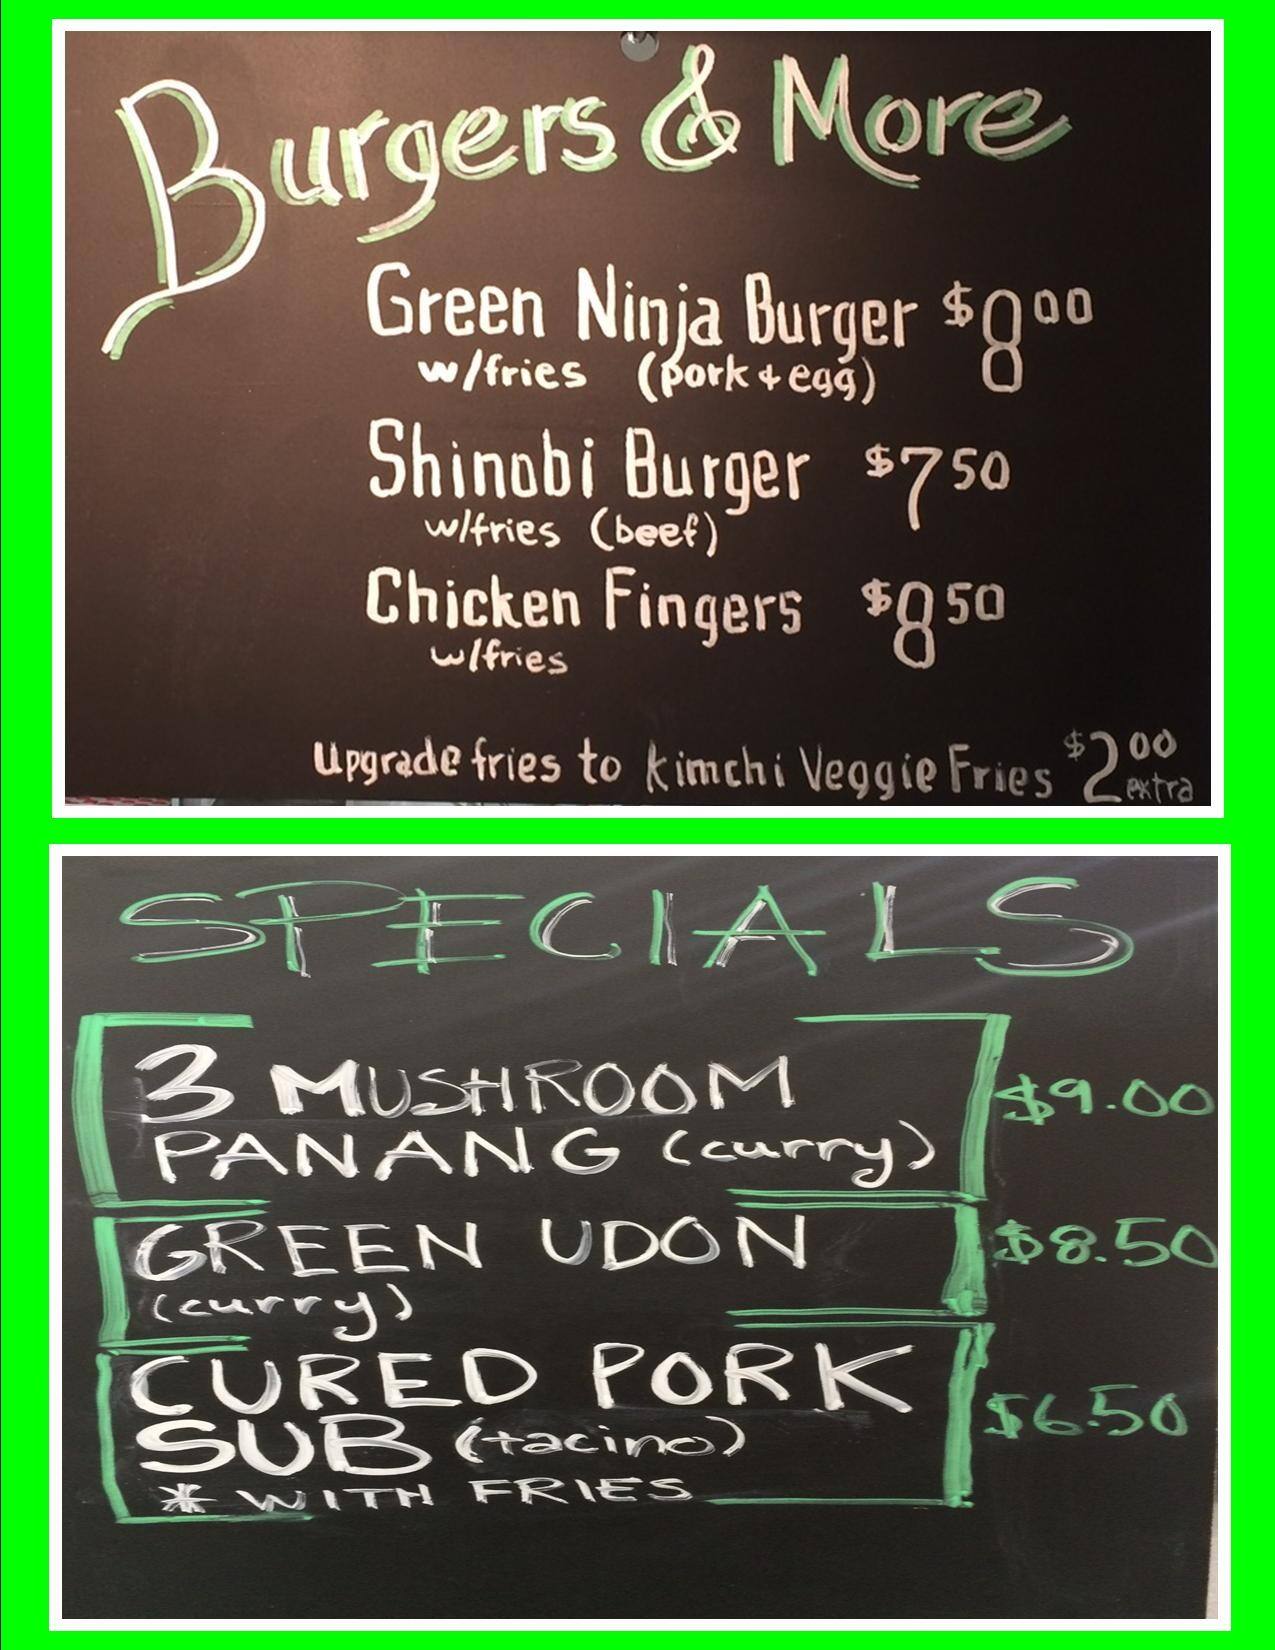 Burgers & More
Green Ninja Burger $8.00
w/fries (pork + egg)
Shinobi Burger $7.50
w/fries (beef)
Chicken Fingers $8.50
w/fries
Upgrade fries to kimchi Veggie Fries $2.00 extra
SPECIALS
3 MUSHROOM $9.00
PANANG (curry)
GREEN UDON $8.50
(curry)
CURED PORK $6.50
SUB (tacino)
* WITH FRIES